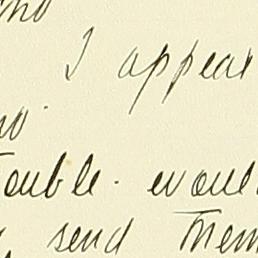 I appear
ouble. would
send them